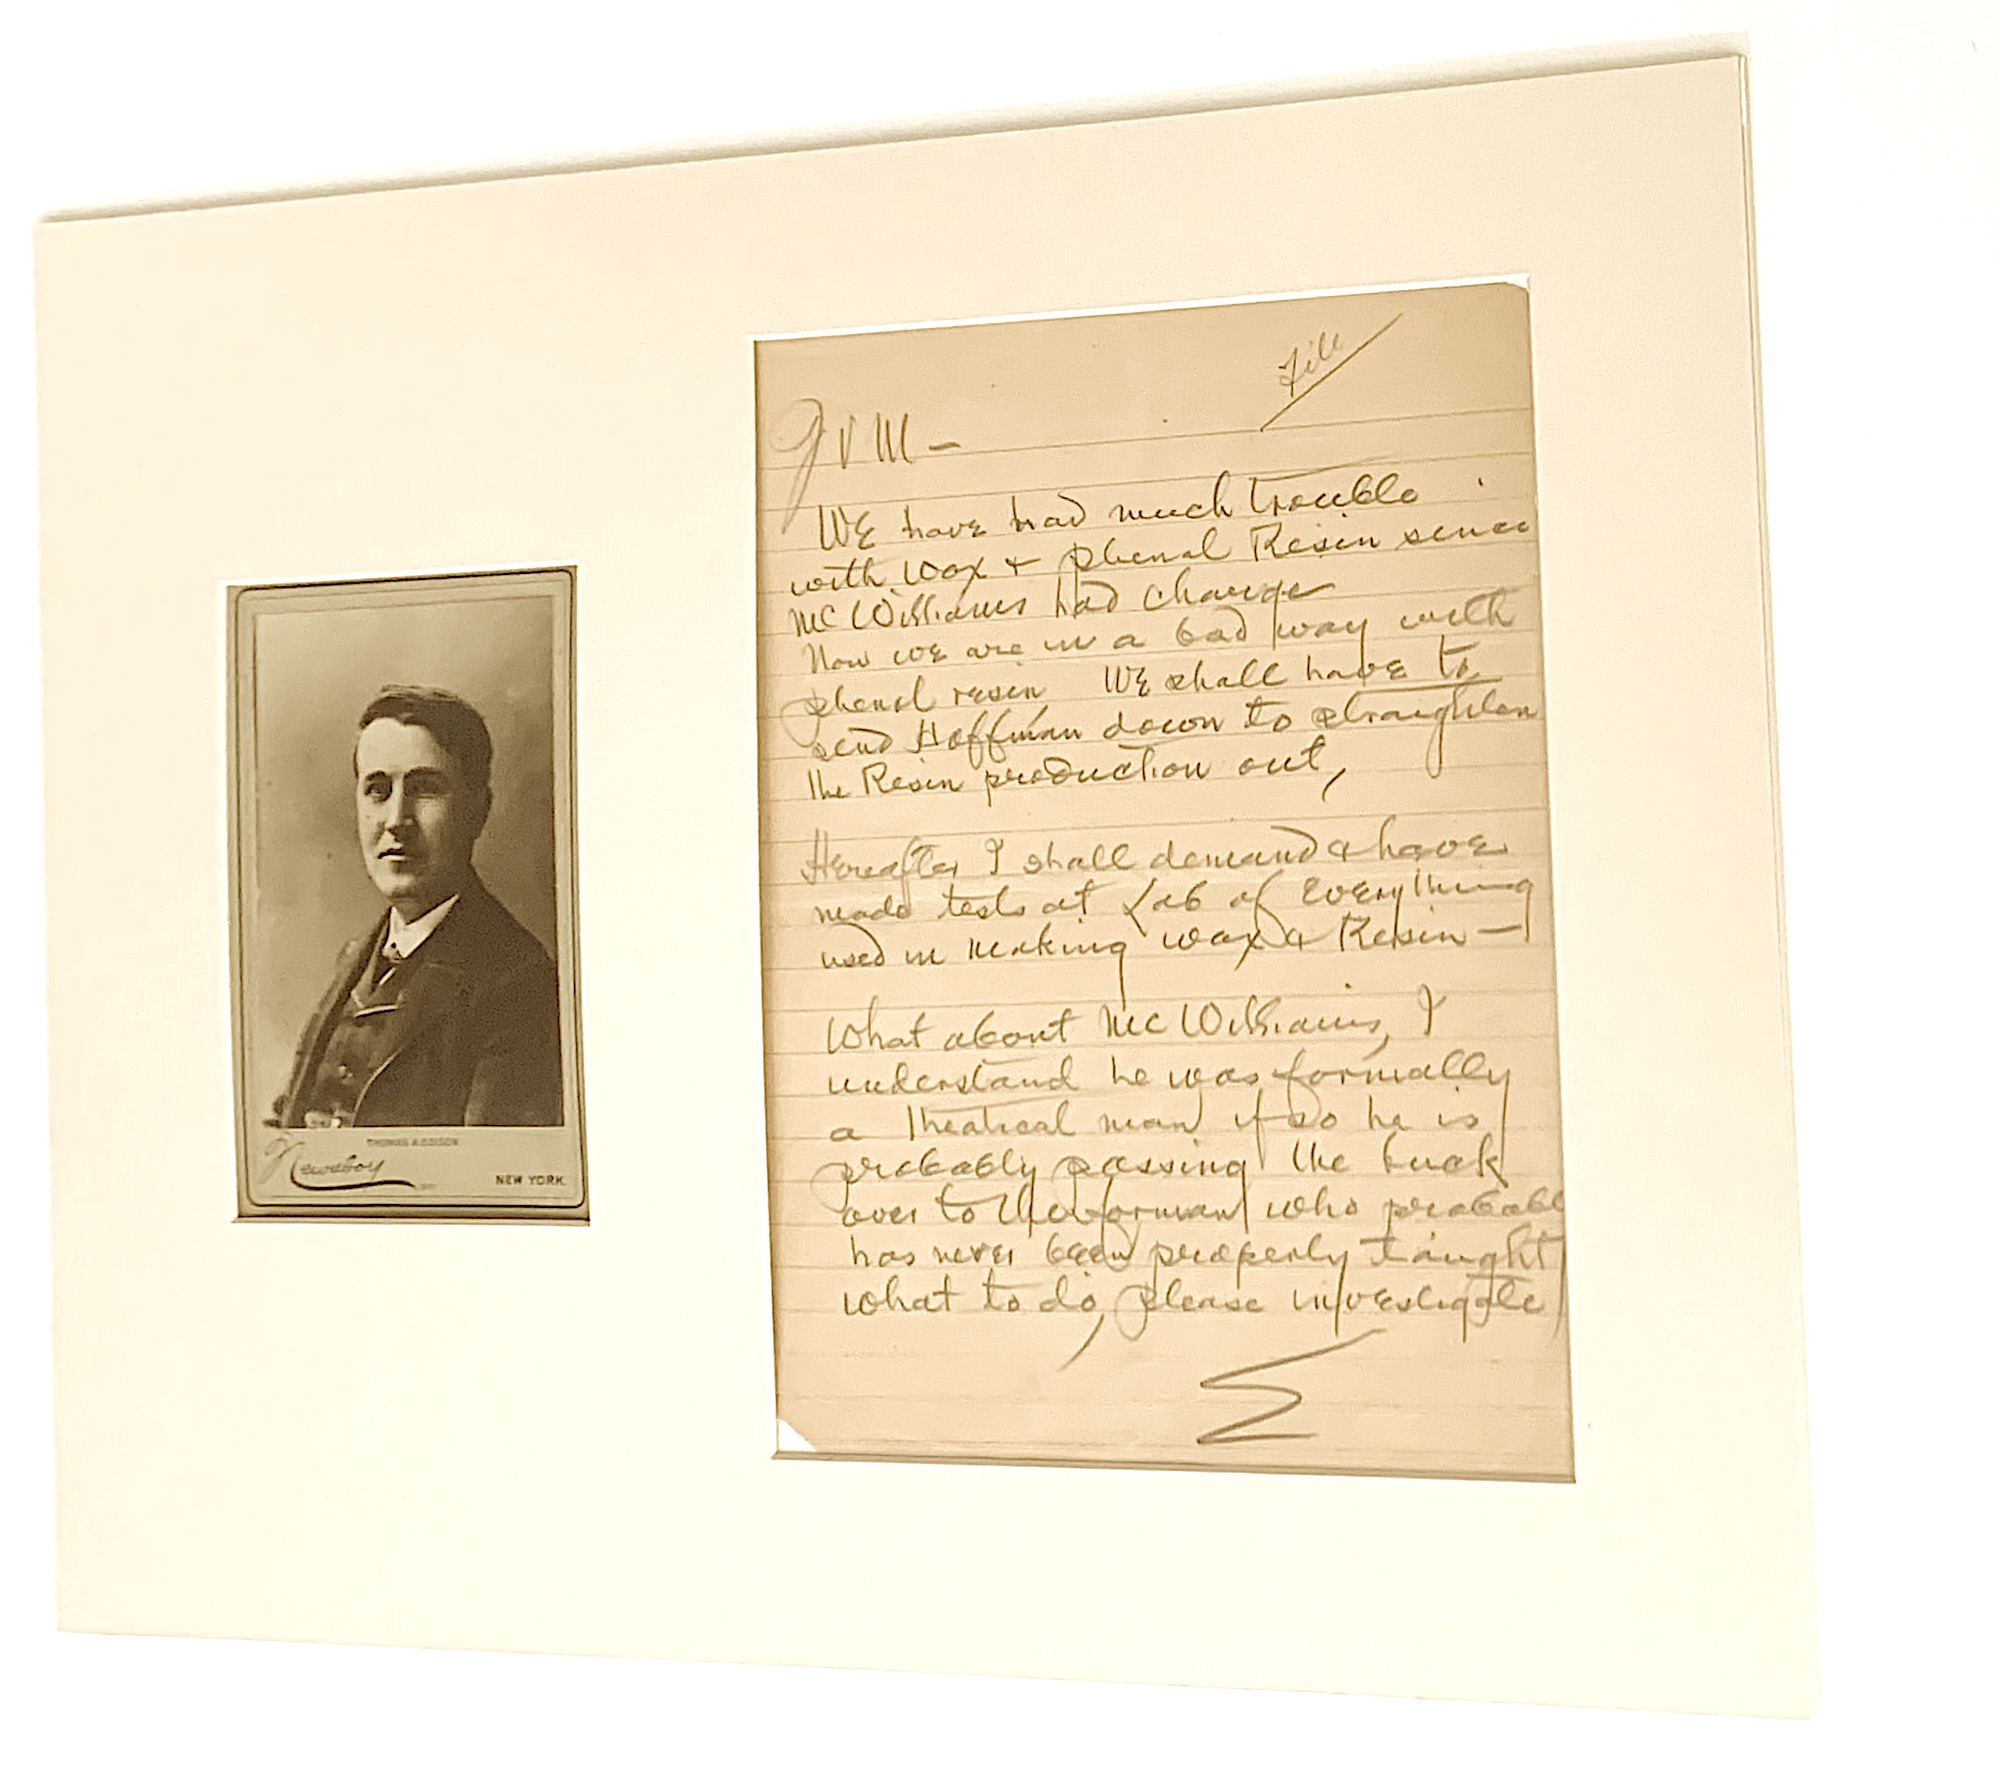 THOMAS A. EDISON
Newsboy
NEW YORK.
File
We have had much trouble
with Wax + phenol Resin since
McWilliams had charge
Now we are in a bad way with
phenol resin, We shall have to
send Hoffman down to straighten
the Resin production out,
Hereafter I shall demand & have
made tests at Lab of Everything
used in making wax & Resin —
What about McWilliams, I
understand he was formally
a theatrical man if so he is
probably passing the buck
over to the forman who probabl
has never been properly taught
what to do, please investigate
E